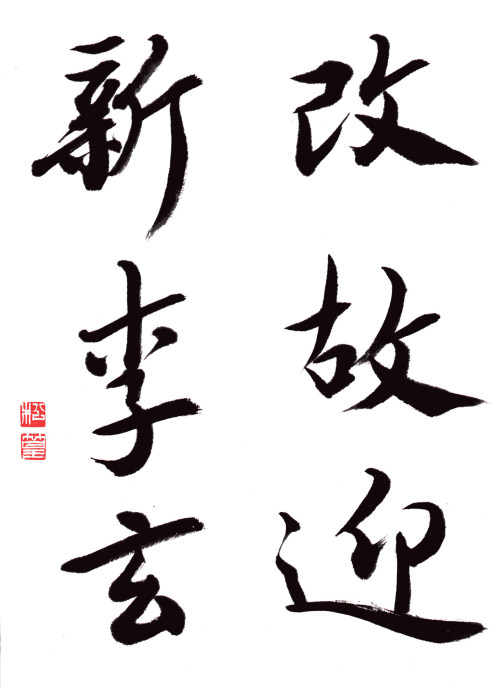 改故迎
新李玄
松